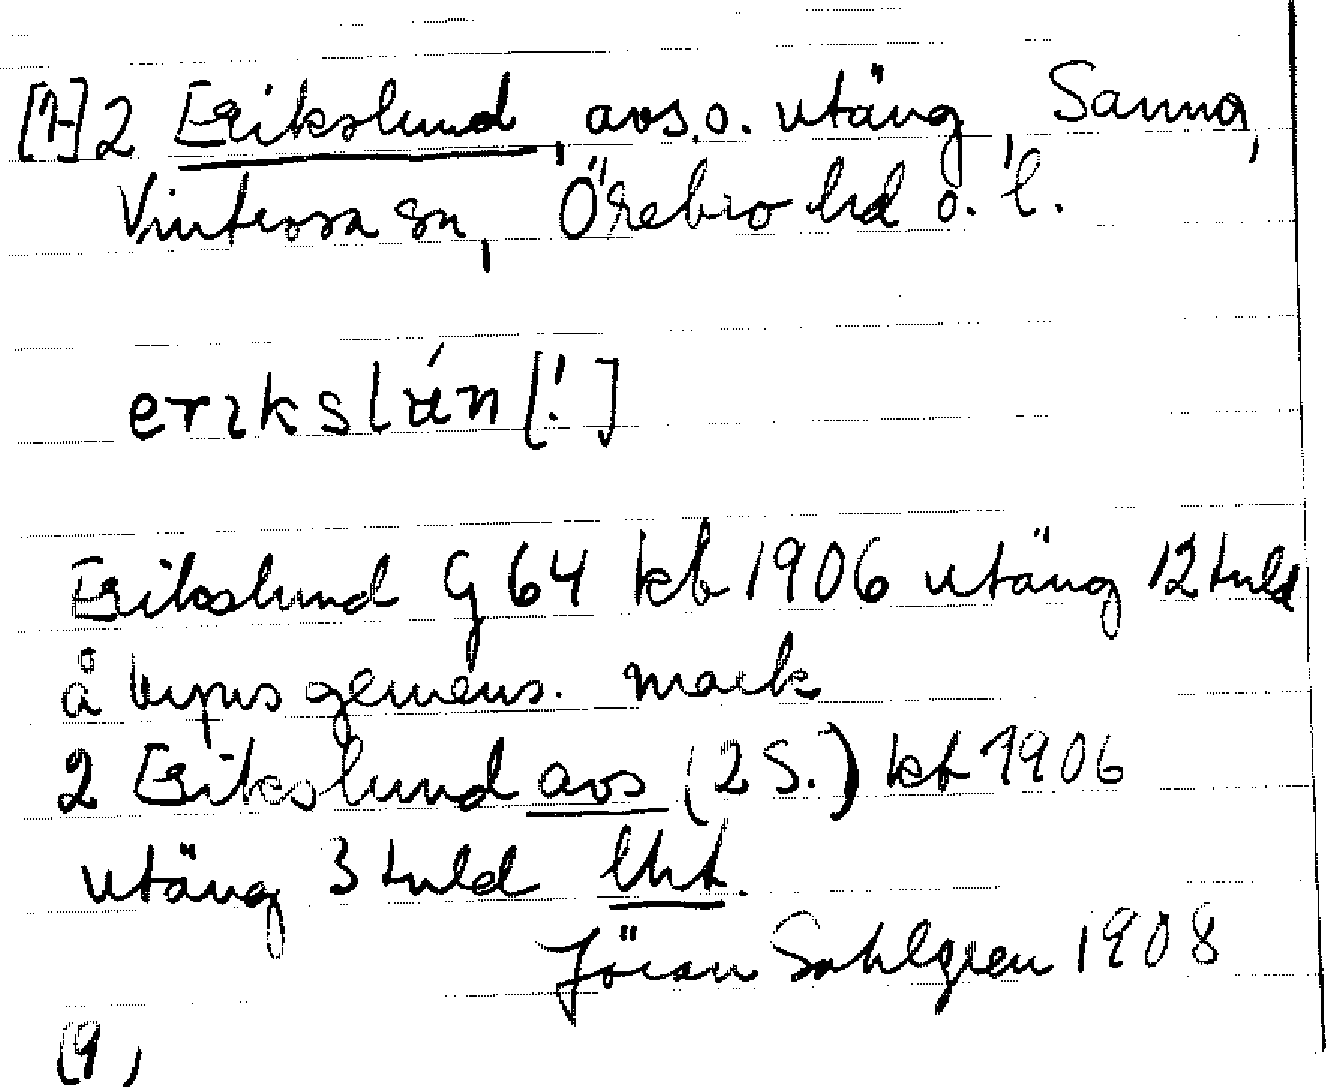 [1-]2 Erikslund, avs. o. utäng, Sanna,
Vintrosa sn, Örebro hd o. l.
erikslún [!]
Erikslund G 64 kb 1906 utäng 12 tnld
å byns gemens. mark
2 Erikslund avs (2 S.) kb 1906
utäng 3 tnld lht.
Jöran Sahlgren 1908
(9,